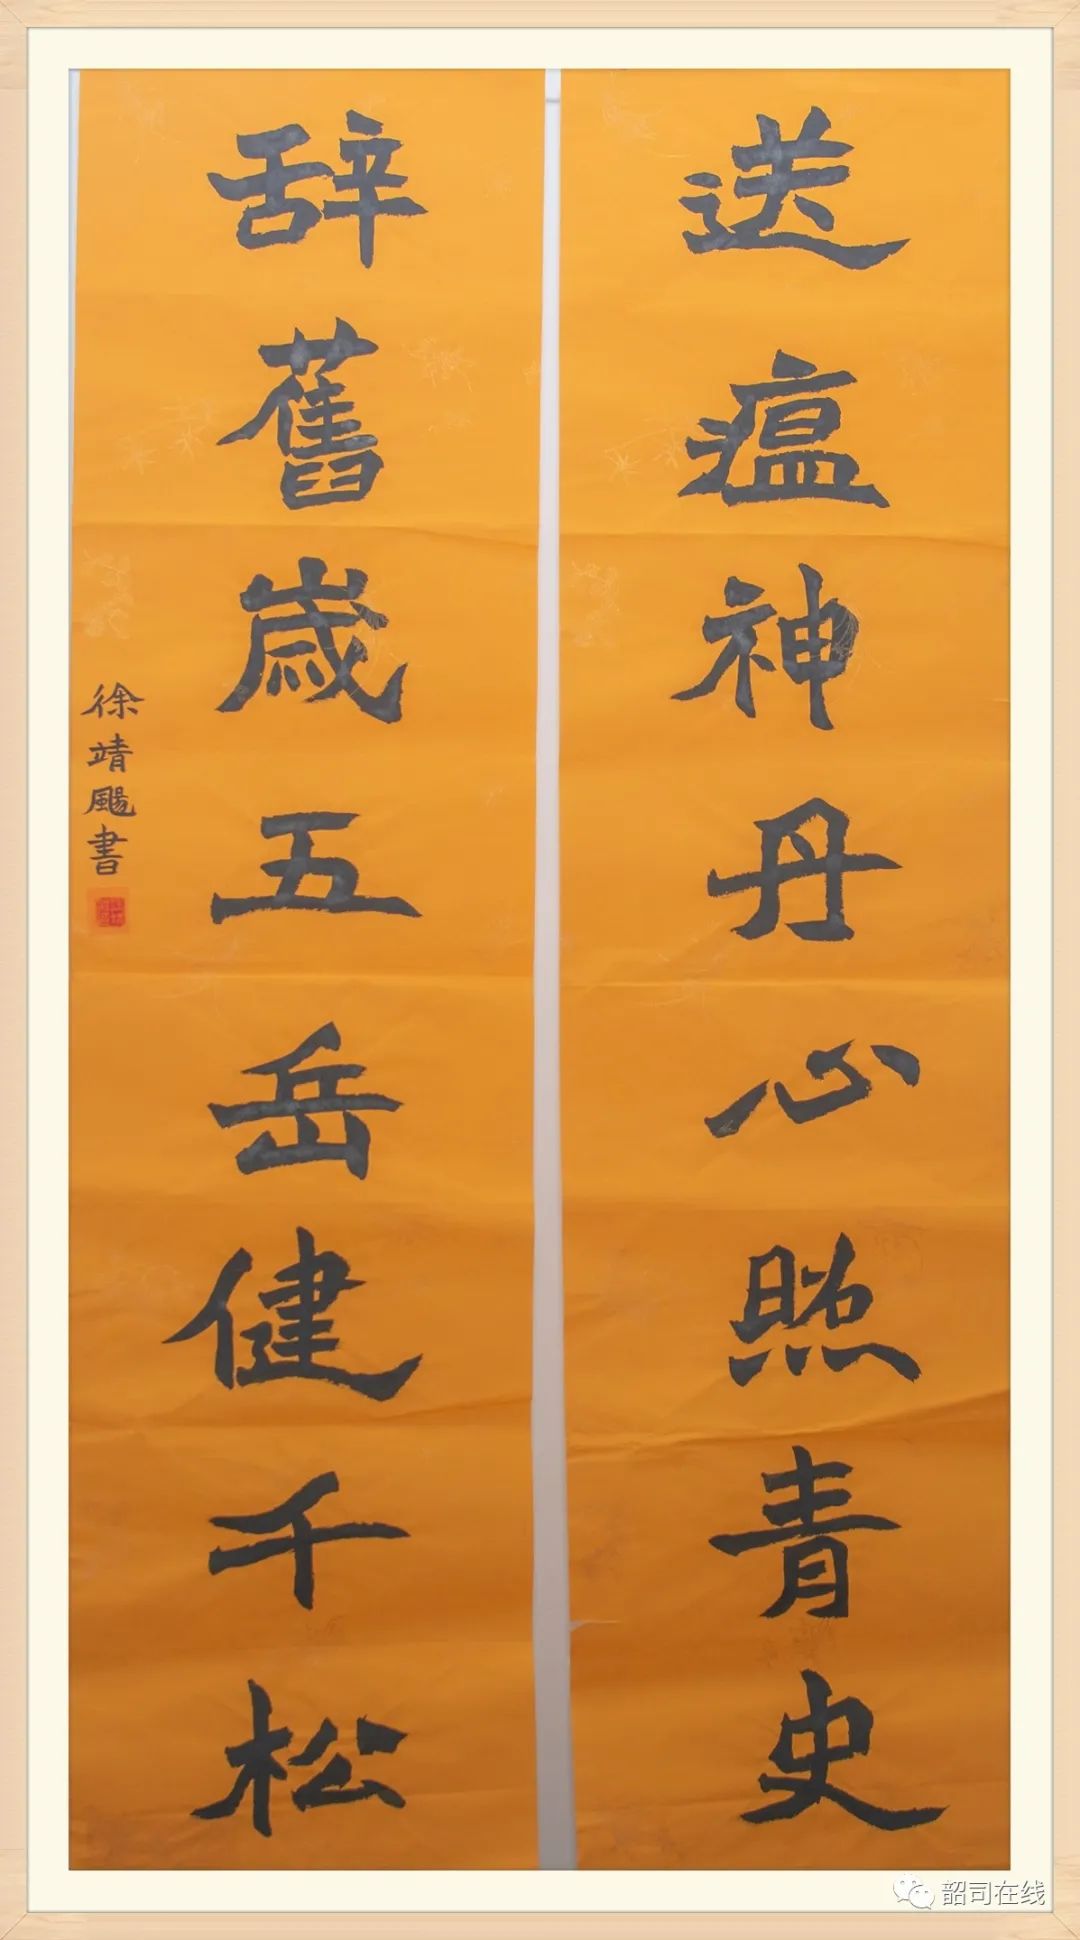 送瘟神丹心照青史
辞舊歲五岳健千松
徐靖颺書
韶司在线